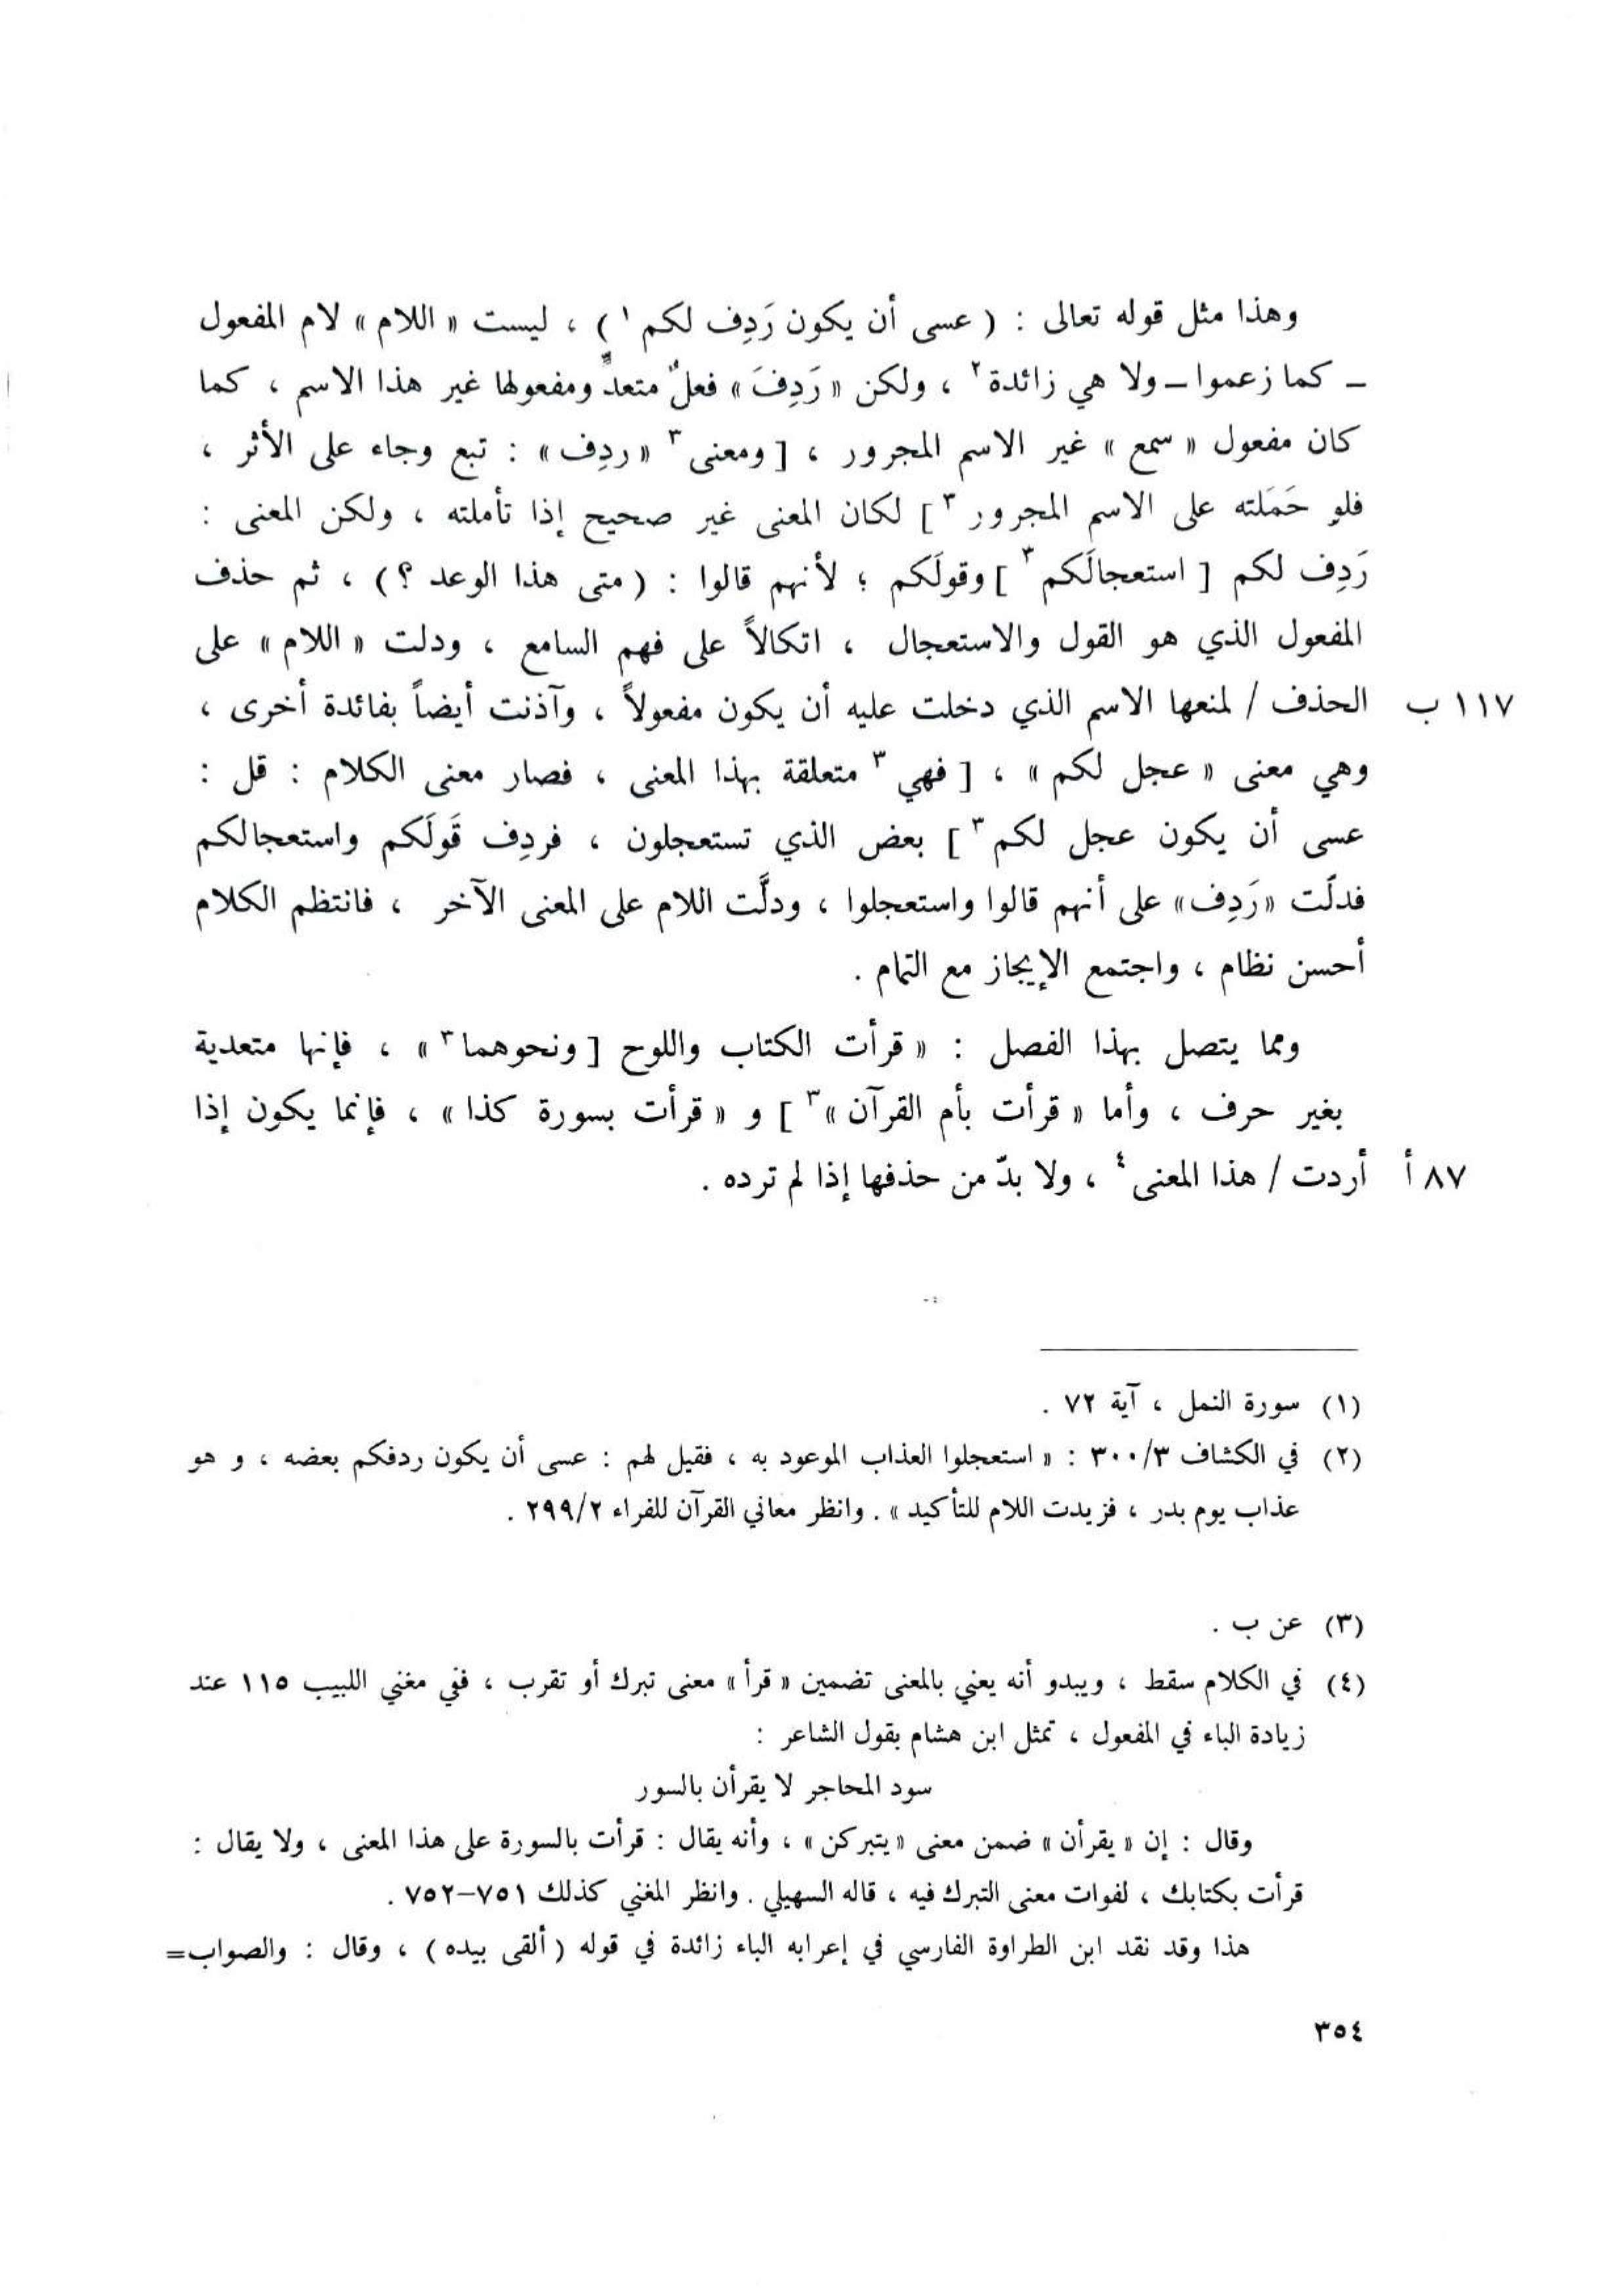 وهذا مثل قوله تعالى : ( عسى أن يكون رَدِف لكم ١ ) ، ليست « اللام » لام المفعول
ـ كما زعموا ـ ولا هي زائدة ٢ ، ولكن « رَدِفَ » فعلٌ متعدٍّ ومفعولها غير هذا الاسم ، كما
كان مفعول « سمع » غير الاسم المجرور ، [ ومعنى ٣ « ردِف » : تبع وجاء على الأثر ،
فلو حَمَلته على الاسم المجرور ٣ ] لكان المعنى غير صحيح إذا تأملته ، ولكن المعنى :
رَدِف لكم [ استعجالَكم ٣ ] وقولَكم ؛ لأنهم قالوا : ( متى هذا الوعد ؟ ) ، ثم حذف
المفعول الذي هو القول والاستعجال ، اتكالاً على فهم السامع ، ودلت « اللام » على
١١٧ ب الحذف / لمنعها الاسم الذي دخلت عليه أن يكون مفعولاً ، وآذنت أيضاً بفائدة أخرى ،
وهي معنى « عجل لكم » ، [ فهي ٣ متعلقة بهذا المعنى ، فصار معنى الكلام : قل :
عسى أن يكون عجل لكم ٣ ] بعض الذي تستعجلون ، فردِف قَولَكم واستعجالكم
فدلَت « رَدِف » على أنهم قالوا واستعجلوا ، ودلَّت اللام على المعنى الآخر ، فانتظم الكلام
أحسن نظام ، واجتمع الإيجاز مع التمام .
ومما يتصل بهذا الفصل : « قرأت الكتاب واللوح [ ونحوهما ٣ » ، فإنها متعدية
بغير حرف ، وأما « قرأت بأم القرآن » ٣ ] و « قرأت بسورة كذا » ، فإنما يكون إذا
٨٧ أ أردت / هذا المعنى ٤ ، ولا بدّ من حذفها إذا لم ترده .
(١) سورة النمل ، آية ٧٢ .
(٢) في الكشاف ٣٠٠/٣ : « استعجلوا العذاب الموعود به ، فقيل لهم : عسى أن يكون ردفكم بعضه ، و هو
عذاب يوم بدر ، فزيدت اللام للتأكيد » . وانظر معاني القرآن للفراء ٢٩٩/٢ .
(٣) عن ب .
(٤) في الكلام سقط ، ويبدو أنه يعني بالمعنى تضمين « قرأ » معنى تبرك أو تقرب ، ففي مغني اللبيب ١١٥ عند
زيادة الباء في المفعول ، تمثل ابن هشام بقول الشاعر :
سود المحاجر لا يقرأن بالسور
وقال : إن « يقرأن » ضمن معنى « يتبركن » ، وأنه يقال : قرأت بالسورة على هذا المعنى ، ولا يقال :
قرأت بكتابك ، لفوات معنى التبرك فيه ، قاله السهيلي . وانظر المغني كذلك ٧٥١–٧٥٢ .
هذا وقد نقد ابن الطراوة الفارسي في إعرابه الباء زائدة في قوله ( ألقى بيده ) ، وقال : والصواب=
٣٥٤